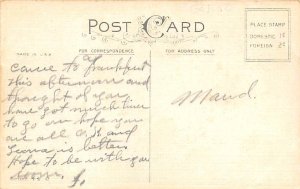 POST CARD
PLACE STAMP
DOMESTIC 1¢
FOREIGN 2¢
MADE IN U.S.A.
FOR CORRESPONDENCE
FOR ADDRESS ONLY
Came to Frankfurt
this afternoon and
thought of you
have not much time
to go on hope you
are all O.K. and
is better
Hope to be with you
soon
Maud.